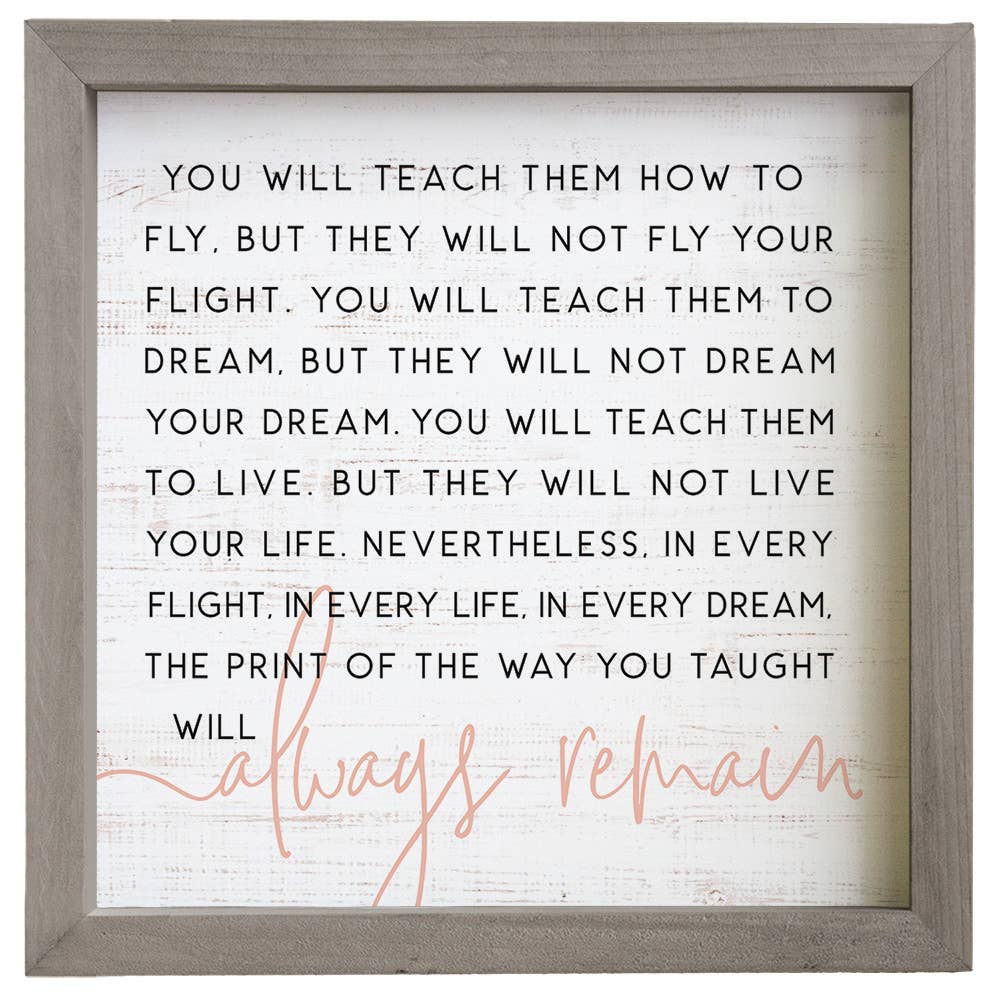 YOU WILL TEACH THEM HOW TO
FLY, BUT THEY WILL NOT FLY YOUR
FLIGHT. YOU WILL TEACH THEM TO
DREAM, BUT THEY WILL NOT DREAM
YOUR DREAM. YOU WILL TEACH THEM
TO LIVE. BUT THEY WILL NOT LIVE
YOUR LIFE. NEVERTHELESS, IN EVERY
FLIGHT, IN EVERY LIFE, IN EVERY DREAM,
THE PRINT OF THE WAY YOU TAUGHT
WILL
always remain